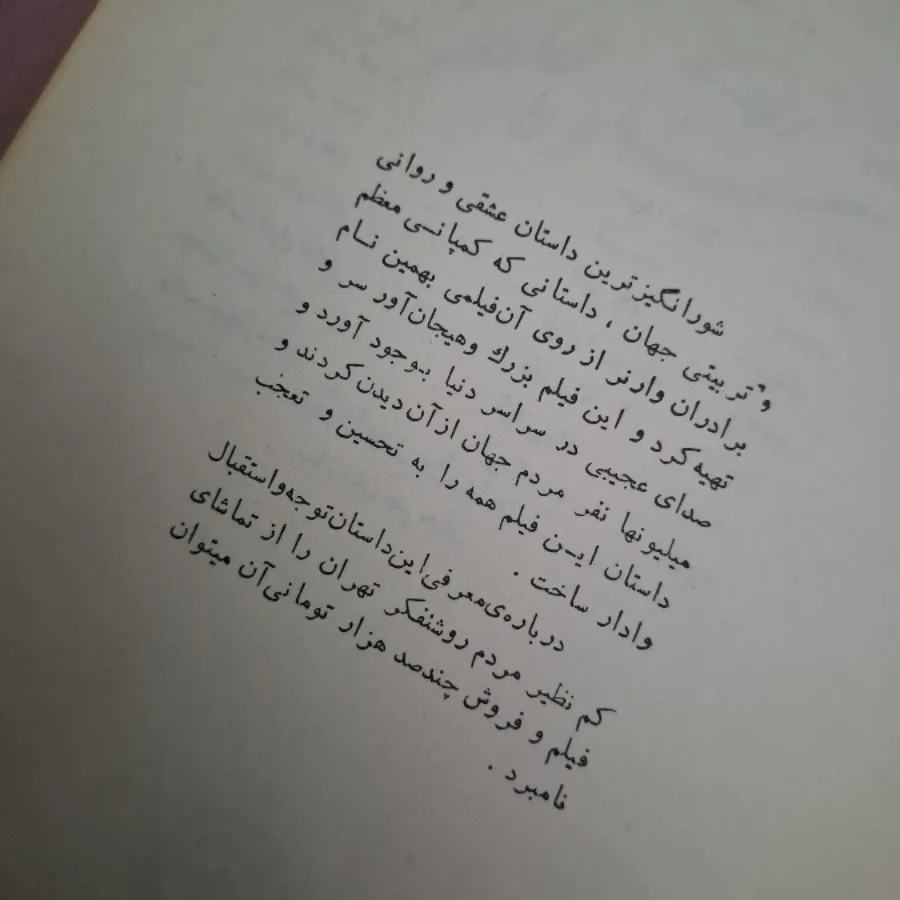 شورانگیزترین داستان عشقی و روانی
و تربیتی جهان ، داستانی که کمپانی معظم
برادران وارنر از روی آن‌فیلمی بهمین نام
تهیه کرد و این فیلم بزرك وهیجان‌آور سر و
صدای عجیبی در سراسر دنیا بوجود آورد و
میلیونها نفر مردم جهان از آن دیدن کردند و
داستان این فیلم همه را به تحسین و تعجب
وادار ساخت .
درباره‌ی معرفی این‌داستان توجه واستقبال
کم نظیر مردم روشنفکر تهران را از تماشای
فیلم و فروش چندصد هزار تومانی آن میتوان
نامبرد .